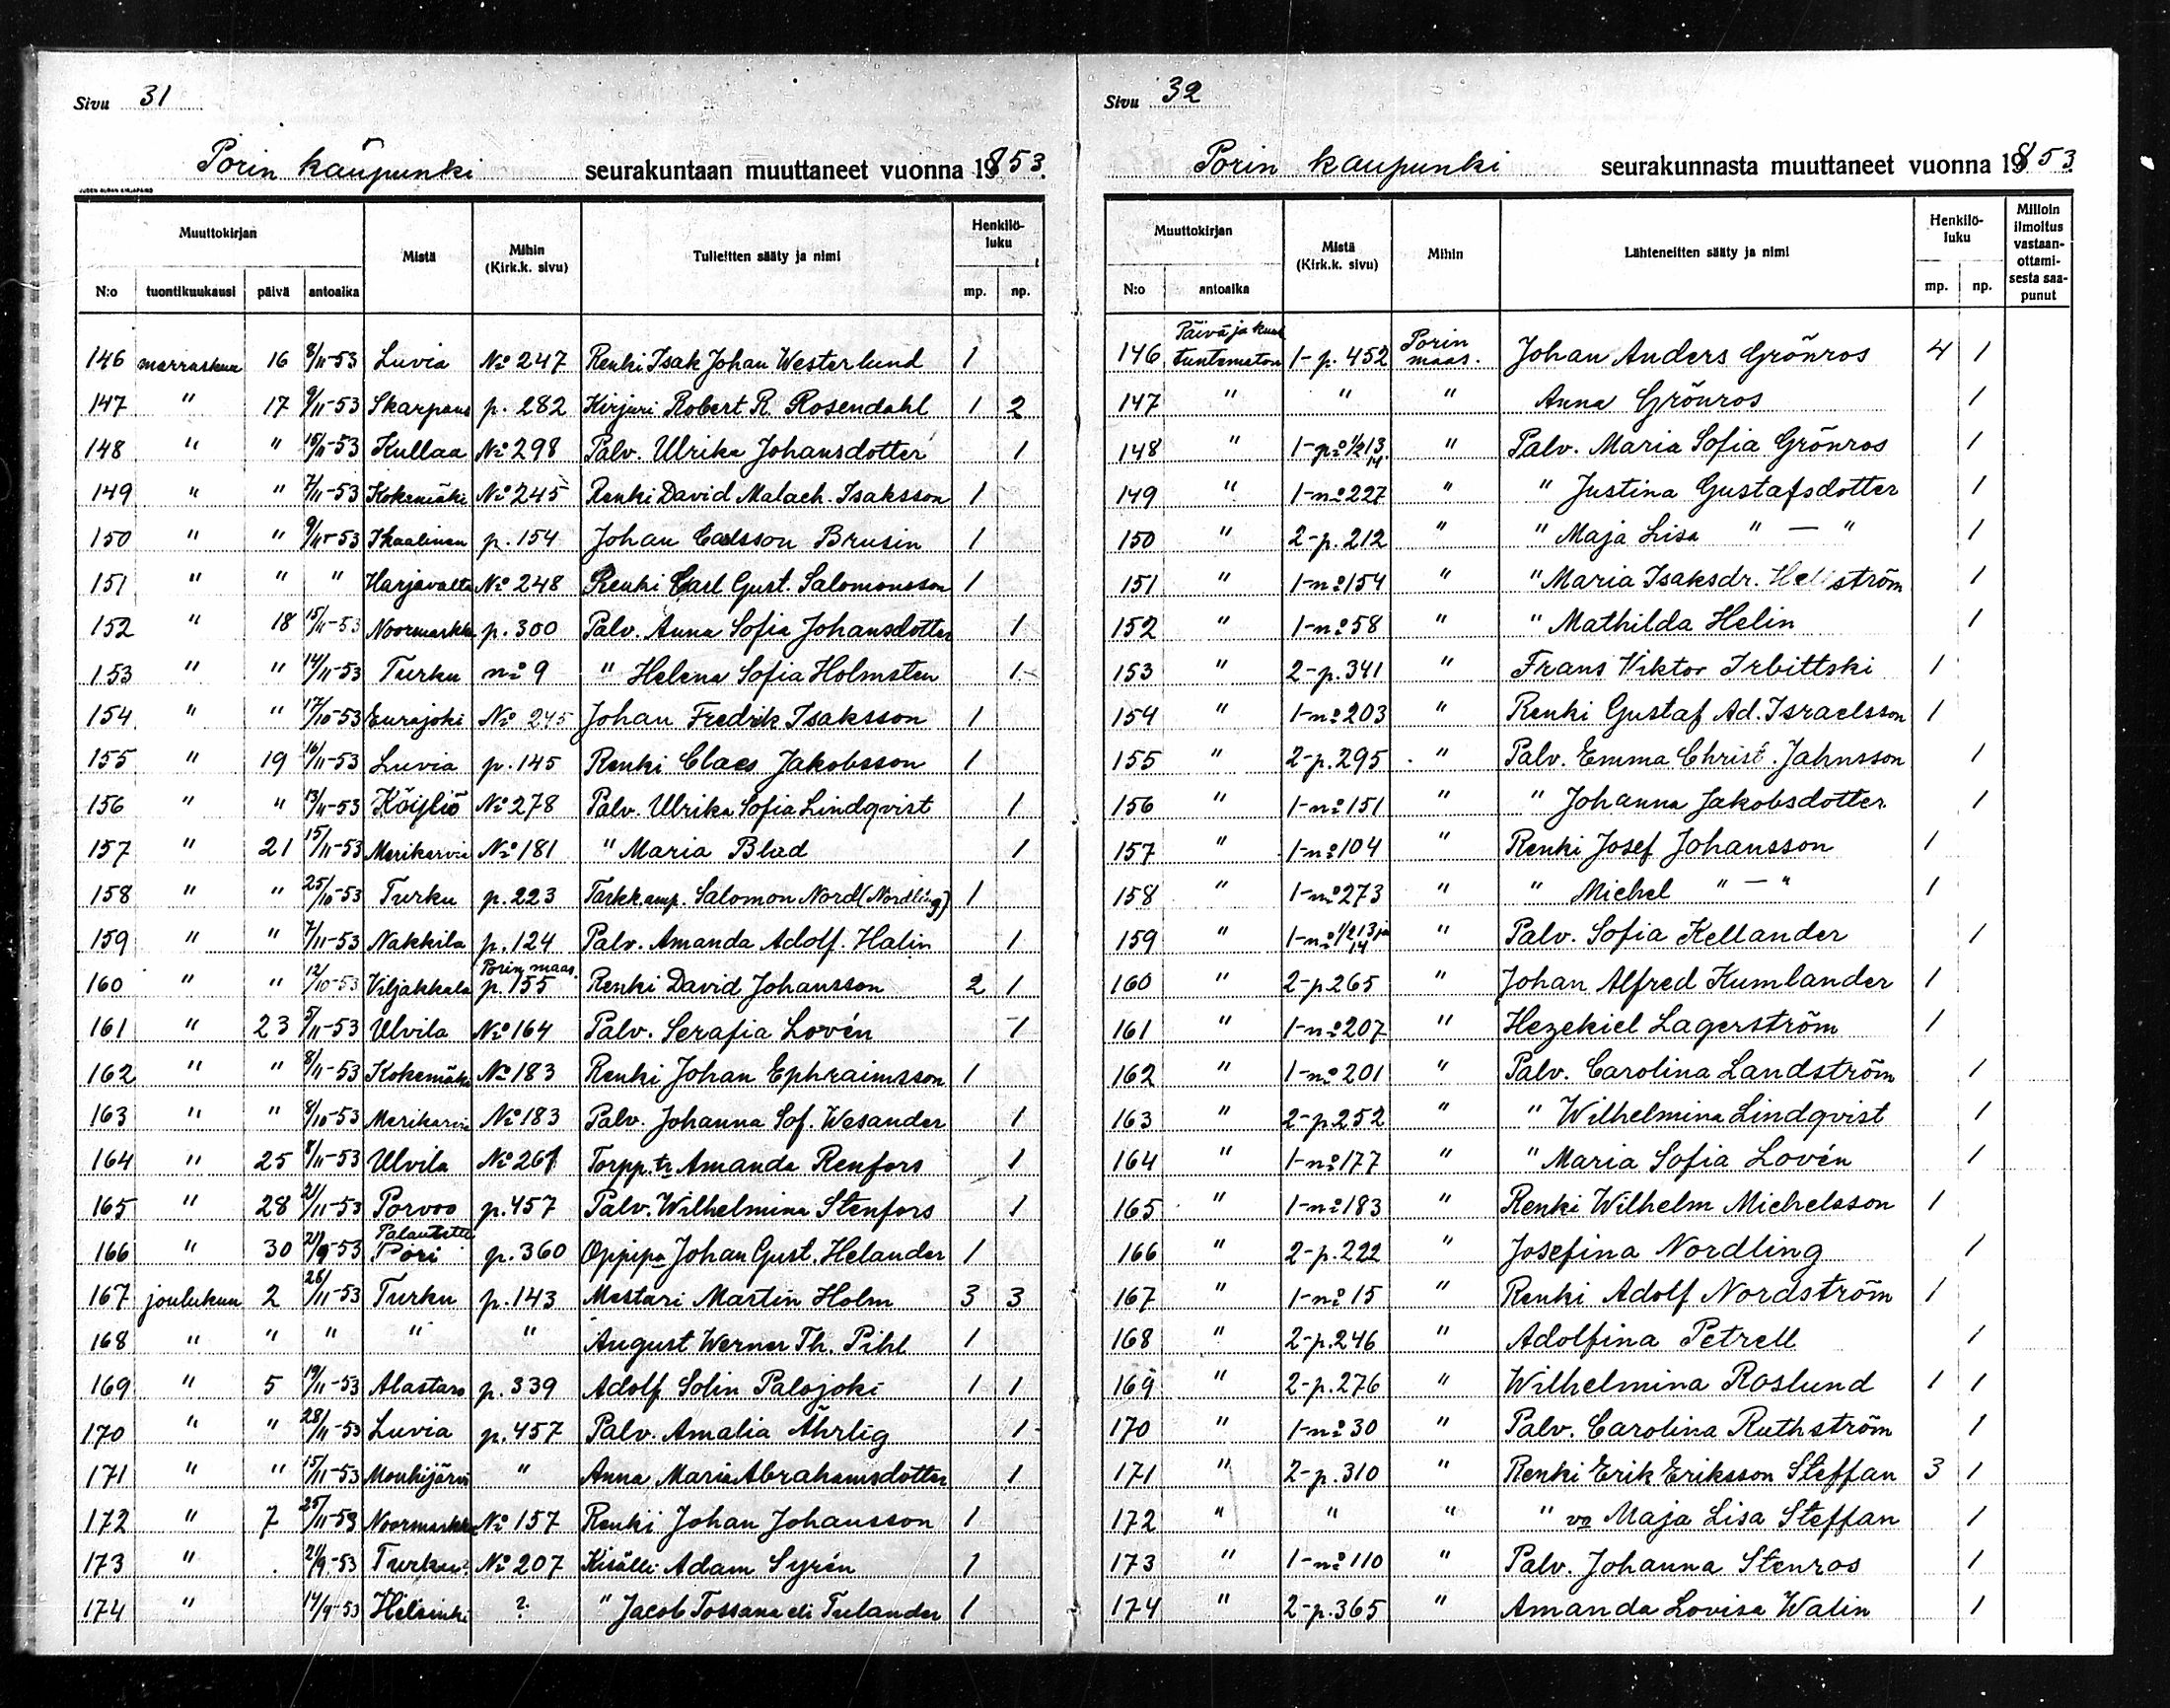 Sivu 31
Porin kaupunki seurakuntaan muuttaneet vuonna 1853.
Muuttokirjan Mistä Mihin (Kirk.k. sivu) Tulleitten sääty ja nimi Henkilöluku
N:o tuontikuukausi päivä antoaika mp. np.
146 marraskuu 16 8/11-53 Luvia No 247 Renki Isak Johan Westerlund 1
147 " 17 9/11-53 Skarpans p. 282 Kirjuri Robert R. Rosendahl 1 2
148 " " 15/11-53 Kullaa No 298 Palv. Ulrika Johansdotter 1
149 " " 7/11-53 Kokemäki No 245 Renki David Malach. Isaksson 1
150 " " 9/11-53 Ikaalinen p. 154 Johan Carlsson Brusin 1
151 " " " Harjavalta No 248 Renki Carl Gust. Salomonsson 1
152 " 18 15/11-53 Noormarkku p. 300 Palv. Anna Sofia Johansdotter 1
153 " " 14/11-53 Turku no 9 " Helena Sofia Holmsten 1
154 " " 17/10-53 Eurajoki No 245 Johan Fredrik Isaksson 1
155 " 19 16/11-53 Luvia p. 145 Renki Claes Jakobsson 1
156 " " 13/11-53 Köyliö No 278 Palv. Ulrika Sofia Lindqvist 1
157 " 21 15/11-53 Merikarvia No 181 " Maria Blad 1
158 " " 25/10-53 Turku p. 223 Tarkk.amp. Salomon Nord (Nordling) 1
159 " " 7/11-53 Nakkila p. 124 Palv. Amanda Adolf. Halin 1
160 " " 12/10-53 Viljakkala Porin maas. p. 155 Renki David Johansson 2 1
161 " 23 5/11-53 Ulvila No 164 Palv. Serafia Lovén 1
162 " " 8/11-53 Kokemäki No 183 Renki Johan Ephraimsson 1
163 " " 8/10-53 Merikarvia No 183 Palv. Johanna Sof. Wesander 1
164 " 25 8/11-53 Ulvila No 261 Torpp.tr Amanda Renfors 1
165 " 28 21/11-53 Porvoo p. 457 Palv. Wilhelmina Stenfors 1
166 " 30 21/9-53 Palautettu Pori p. 360 Oppipa Johan Gust. Helander 1
167 joulukuu 2 26/11-53 Turku p. 143 Mestari Martin Holm 3 3
168 " " " " " August Werner Th. Pihl 1
169 " 5 19/11-53 Alastaro p. 339 Adolf Solin Palojoki 1 1
170 " " 28/11-53 Luvia p. 457 Palv. Amalia Ährlig 1
171 " " 15/11-53 Mouhijärvi " Anna Maria Abrahamsdotter 1
172 " 7 25/11-53 Noormarkku No 157 Renki Johan Johansson 1
173 " . 21/9-53 Turku No 207 Kisälli Adam Syrén 1
174 " 14/9-53 Helsinki ? " Jacob Tossana eli Tulander 1
Sivu 32
Porin kaupunki seurakunnasta muuttaneet vuonna 1853
Muuttokirjan Mistä (Kirk.k. sivu) Mihin Lähteneitten sääty ja nimi Henkilöluku Milloin ilmoitus vastaanottamisesta saapunut
N:o antoaika mp. np.
146 Päivä ja kuuk tuntematon 1-p. 452 Porin maas. Johan Anders Grönros 4 1
147 " " " Anna Grönros 1
148 " 1-no 1/2 13, 14 " Palv. Maria Sofia Grönros 1
149 " 1-no 227 " " Justina Gustafsdotter 1
150 " 2-p. 212 " " Maja Lisa " — " 1
151 " 1-no 154 " " Maria Isaksdr. Hellström 1
152 " 1-no 58 " " Mathilda Helin 1
153 " 2-p. 341 " Frans Viktor Irbittski 1
154 " 1-no 203 " Renki Gustaf Ad. Israelsson 1
155 " 2-p. 295 " Palv. Emma Christ. Jahnsson 1
156 " 1-no 151 " " Johanna Jakobsdotter 1
157 " 1-no 104 " Renki Josef Johansson 1
158 " 1-no 273 " " Michel " — " 1
159 " 1-no 1/2 13 ja 14 " Palv. Sofia Kellander 1
160 " 2-p 265 " Johan Alfred Kumlander 1
161 " 1-no 207 " Hezekiel Lagerström 1
162 " 1-no 201 " Palv. Carolina Landström 1
163 " 2-p. 252 " " Wilhelmina Lindqvist 1
164 " 1-no 177 " " Maria Sofia Lovén 1
165 " 1-no 183 " Renki Wilhelm Michelsson 1
166 " 2-p. 222 " Josefina Nordling 1
167 " 1-no 15 " Renki Adolf Nordström 1
168 " 2-p. 246 " Adolfina Petrell 1
169 " 2-p. 276 " Wilhelmina Roslund 1 1
170 " 1-no 30 " Palv. Carolina Ruthström 1
171 " 2-p. 310 " Renki Erik Eriksson Steffan 3 1
172 " " " " va Maja Lisa Steffan 1
173 " 1-no 110 " Palv. Johanna Stenros 1
174 " 2-p. 365 " Amanda Lovisa Walin 1